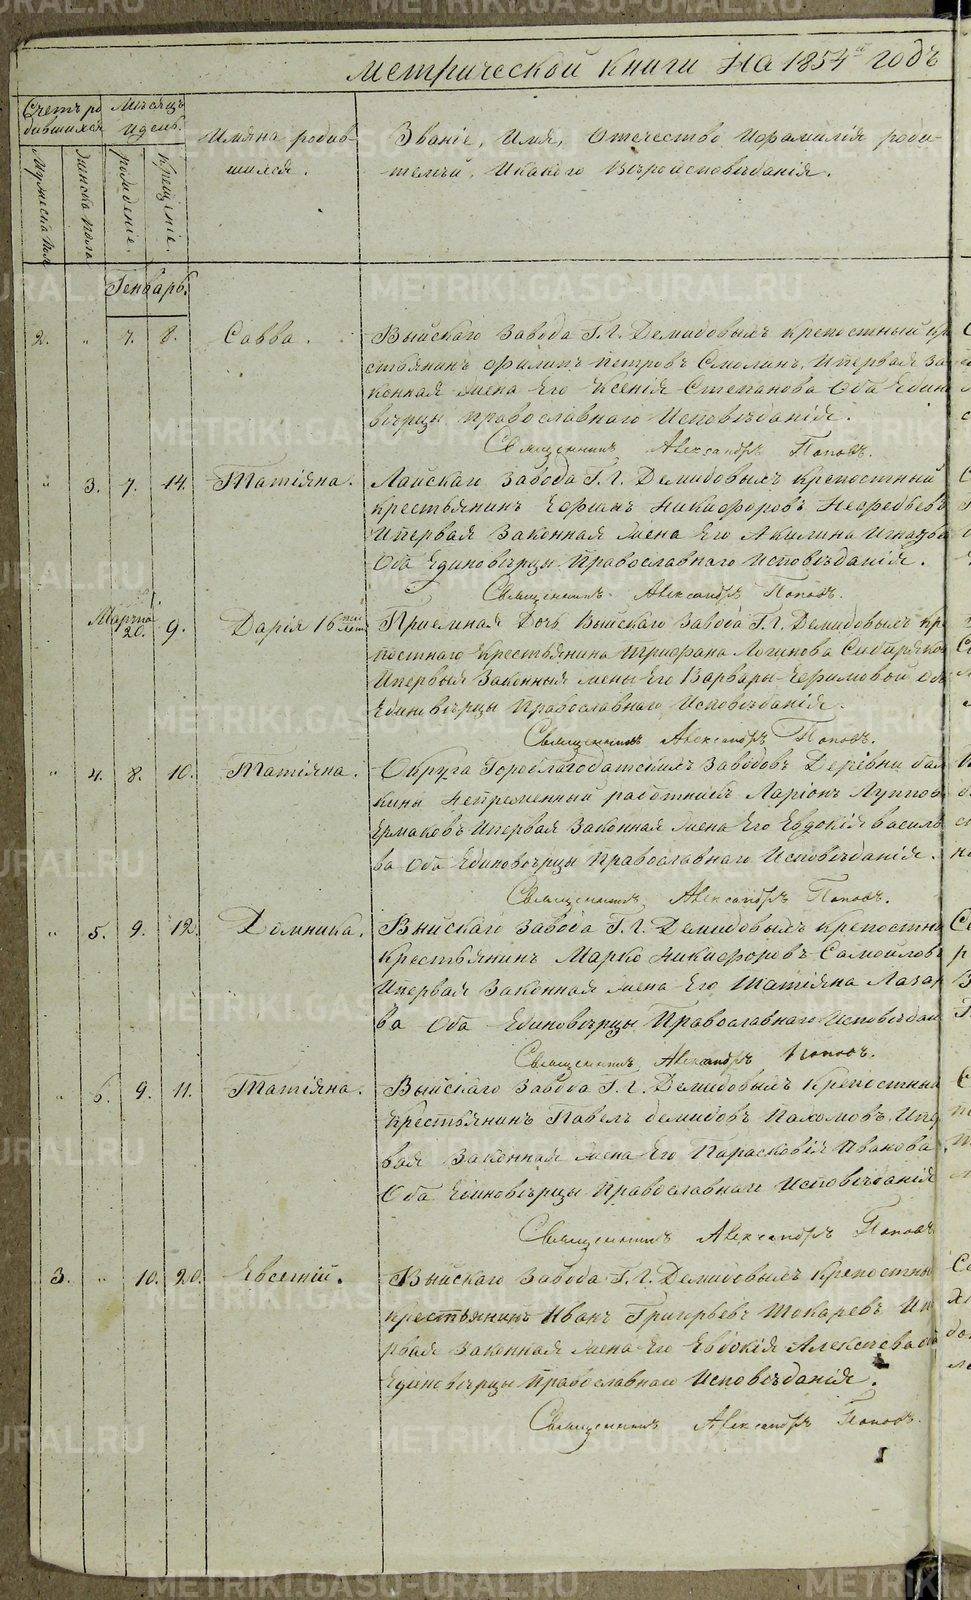 метрической книги на 1854й годъ
Счетъ ро
дившихся
Мѣсяцъ
и день
Имяна родив-
шихся.
Званіе, Имя, Отечество и фамилія роди-
телей, и какого вѣроисповѣданія.
Мужеска пола
Женска пола
рожденіе.
крещеніе.
Генварь.
2. „ 7. 8. Савва. Выйскаго завода Г.г. Демидовыхъ крепостный кре
стьянинъ Филипъ Петровъ Смолинъ, и первая за
конная жена его Ксенія Степанова оба Един
вѣрцы православнаго исповѣданія.
Священникъ Александръ Поповъ.
„ 3. 7. 14. Татіяна. Лайскаго завода Г.г. Демидовыхъ крепостный
крестьянинъ Ефимъ Никифоровъ
и первая законная жена его Акилина
оба Единовѣрцы Православнаго исповѣданія.
Священникъ Александръ Поповъ.
Марта
20. 9. Дарія 16 лет Приемная дочь Выйскаго завода Г.г. Демидовыхъ кре
постнаго крестьянина Трифана Логинова Сибиряко
и первыя законныя жены его Варвары Ефимовой оба
Единовѣрцы Православнаго исповѣданія.
Священникъ Александръ Поповъ.
„ 4. 8. 10. Татіяна. Округа Гороблагодатскихъ заводовъ Деревни бал
кины непременный работникъ Ларіонъ Лупповъ
Ермаковъ и первая законная жена его Евдокія Василь
ва оба Единовѣрцы Православнаго исповѣданія.
Священникъ Александръ Поповъ.
„ 5. 9. 12. Домника. Выйскаго завода Г.г. Демидовыхъ крепостны
крестьянинъ Марко Никифоровъ Самойловъ
и первая законная жена его Татіяна Лазар
ва оба Единовѣрцы Православнаго исповѣдан
Священникъ Александръ Поповъ.
„ 6. 9. 11. Татіяна. Выйскаго завода Г.г. Демидовыхъ крепостный
крестьянинъ Павелъ Демидовъ Пахомовъ, и пер
вая законная жена его Парасковія Иванова
оба Единовѣрцы Православнаго исповѣданія
Священникъ Александръ Поповъ
3. „ 10. 20. Евсегній. Выйскаго завода Г.г. Демидовыхъ крепостны
крестьянинъ Иванъ Григорьевъ Токаревъ и п
рвая законная жена его Евдокія Алексеева оба
Единовѣрцы православнаго исповѣданія.
Священникъ Александръ Поповъ.
METRIKI.GASO-URAL.RU